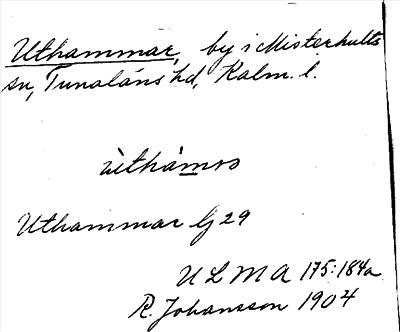 Uthammar, by i Misterhults
sn, Tunaläns hd, Kalm. l.
ùthámos
Uthammar Gj 29
ULMA 175:184a
R. Johansson 1904